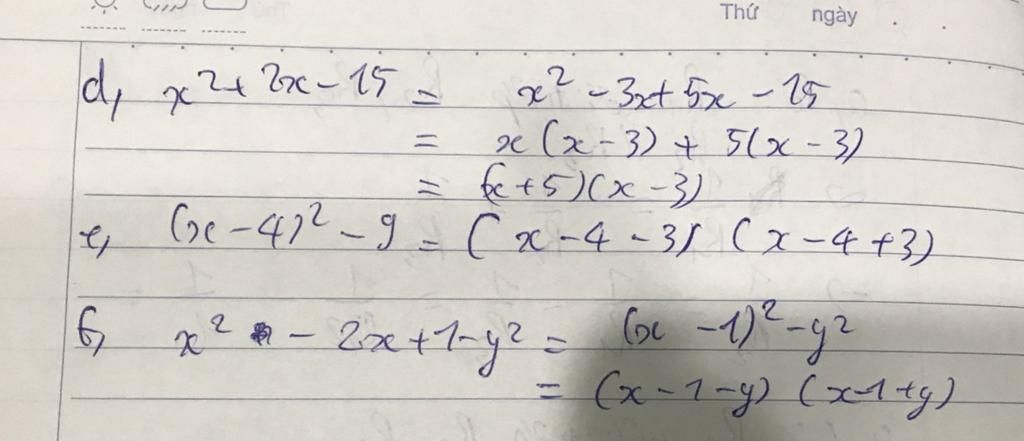 Thứ ngày . .
d, x² + 2x - 15 = x² - 3x + 5x - 15
= x(x - 3) + 5(x - 3)
= (x + 5)(x - 3)
e, (x - 4)² - 9 = (x - 4 - 3)(x - 4 + 3)
f, x² - 2x + 1 - y² = (x - 1)² - y²
= (x - 1 - y)(x - 1 + y)